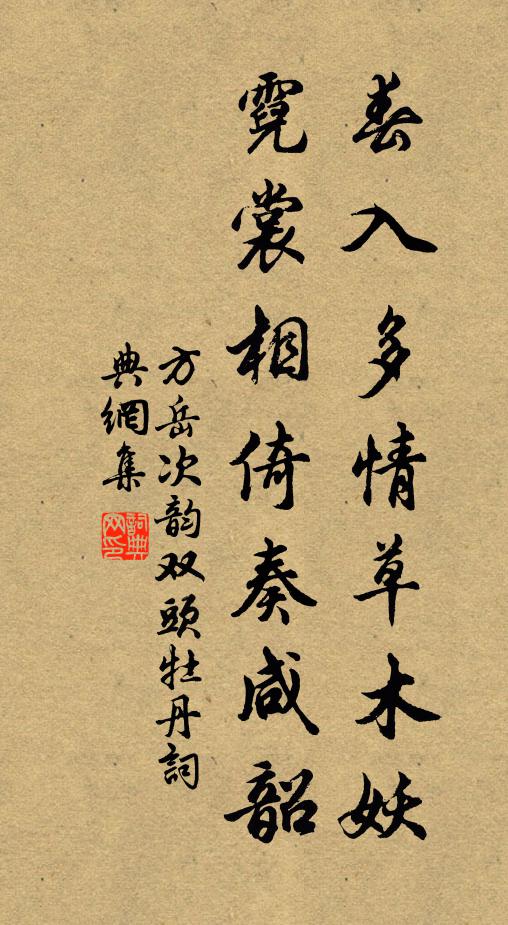 春入多情草木妖
霓裳相倚奏咸韶
方岳次韵双頭牡丹詞
典網集
詞典网印